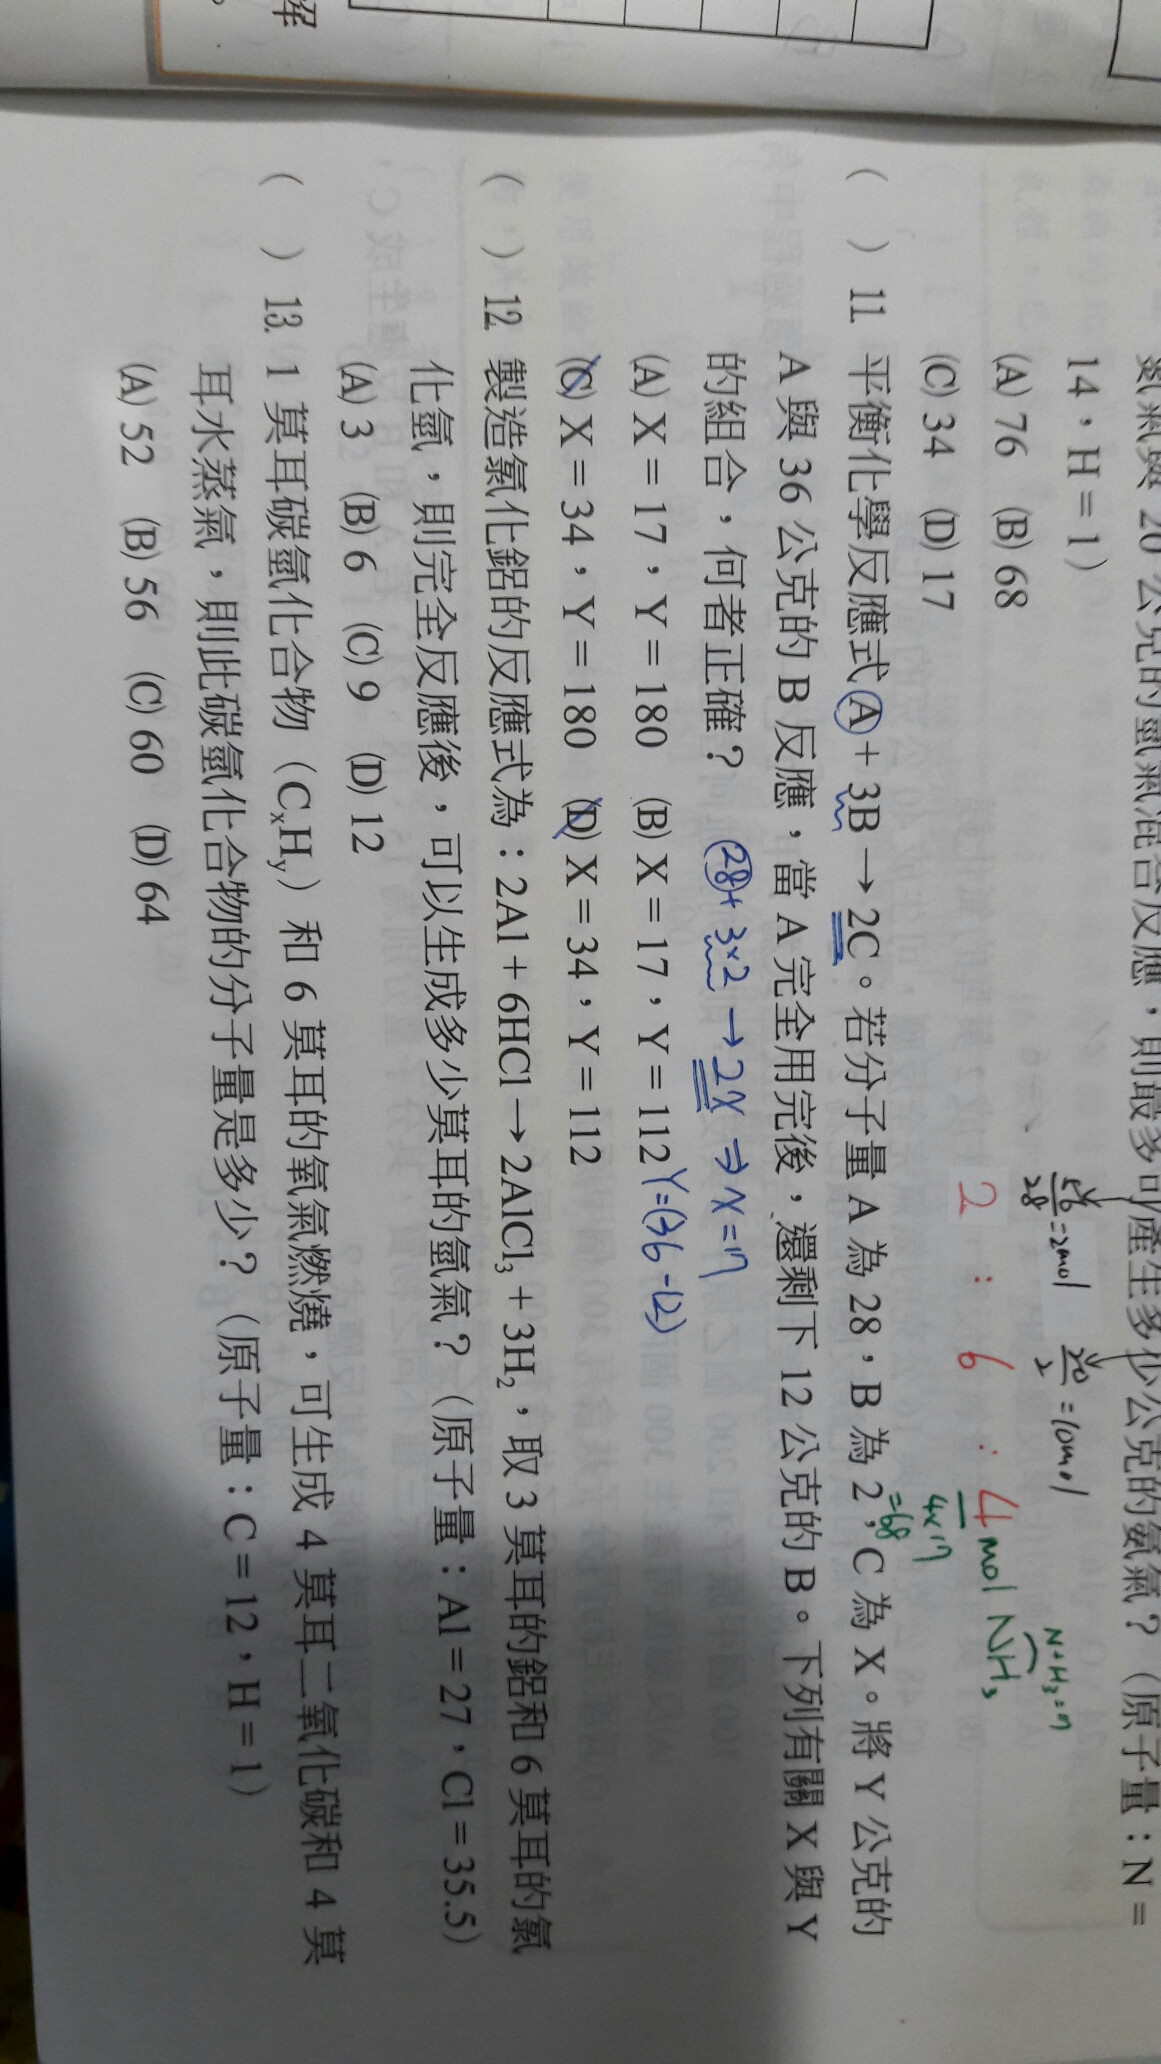 解
氮氣與 20 公克的氫氣混合反應,則最多可產生多少公克的氨氣?(原子量:N =
14,H = 1)
56/28 = 2mol 20/2 = 10mol
N+H₃=17
(A) 76 (B) 68
2 : 6 : 4 mol NH₃
(C) 34 (D) 17
4×17
=68
( ) 11. 平衡化學反應式 A + 3B → 2C。若分子量 A 為 28,B 為 2,C 為 X。將 Y 公克的
A 與 36 公克的 B 反應,當 A 完全用完後,還剩下 12 公克的 B。下列有關 X 與 Y
的組合,何者正確?
28 + 3×2 → 2X ⇒ X = 17
(A) X = 17,Y = 180 (B) X = 17,Y = 112
Y = (36 - 12)
(C) X = 34,Y = 180 (D) X = 34,Y = 112
( ) 12. 製造氯化鋁的反應式為:2Al + 6HCl → 2AlCl₃ + 3H₂,取 3 莫耳的鋁和 6 莫耳的氯
化氫,則完全反應後,可以生成多少莫耳的氫氣?(原子量:Al = 27,Cl = 35.5)
(A) 3 (B) 6 (C) 9 (D) 12
( ) 13. 1 莫耳碳氫化合物(CₓHᵧ)和 6 莫耳的氧氣燃燒,可生成 4 莫耳二氧化碳和 4 莫
耳水蒸氣,則此碳氫化合物的分子量是多少?(原子量:C = 12,H = 1)
(A) 52 (B) 56 (C) 60 (D) 64